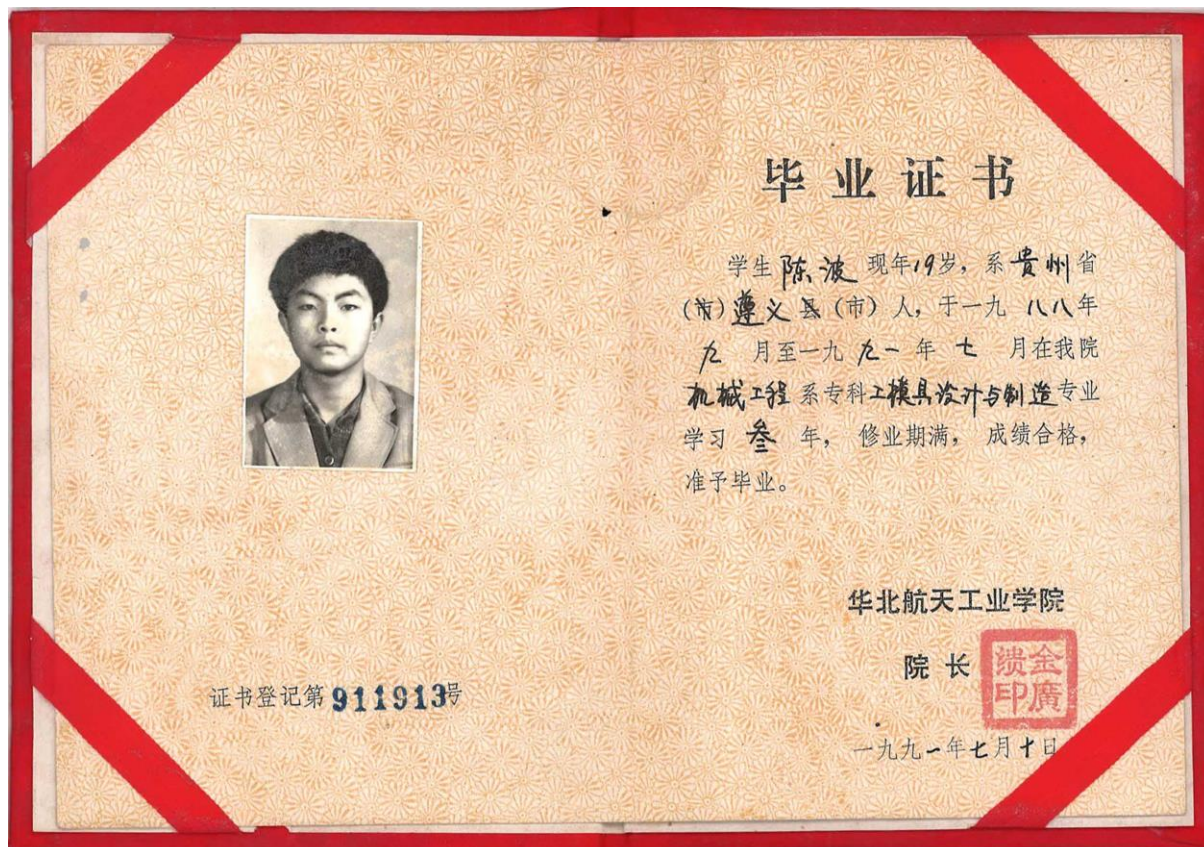 毕业证书
学生陈波现年19岁，系贵州省
(市)遵义县(市)人，于一九八八年
九月至一九九一年七月在我院
机械工程系专科工模具设计与制造专业
学习叁年，修业期满，成绩合格，
准予毕业。
华北航天工业学院
院长
金廣
印
一九九一年七月十日
证书登记第911913号